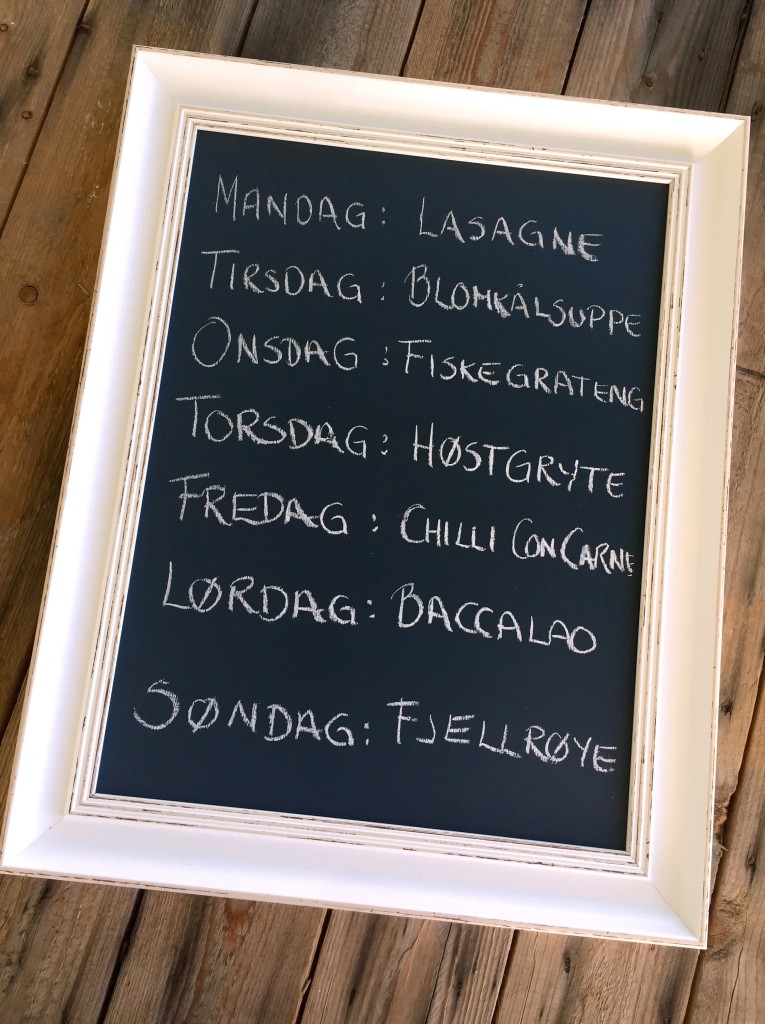 MANDAG: LASAGNE
TIRSDAG: BLOMKÅLSUPPE
ONSDAG: FISKEGRATENG
TORSDAG: HØSTGRYTE
FREDAG: CHILLI CON CARNE
LØRDAG: BACCALAO
SØNDAG: FJELLRØYE